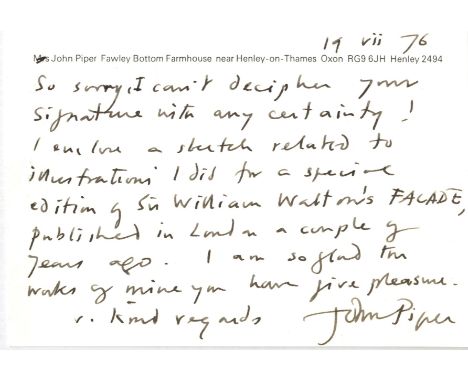 19 vii 76
Mrs John Piper Fawley Bottom Farmhouse near Henley-on-Thames Oxon RG9 6JH Henley 2494
So sorry, I can't decipher your
signature with any certainty!
I enclose a sketch related to
illustrations I did for a special
edition of Sir William Walton's FACADE,
published in London a couple of
years ago. I am so glad the
works of mine you have give pleasure.
Kind regards John Piper